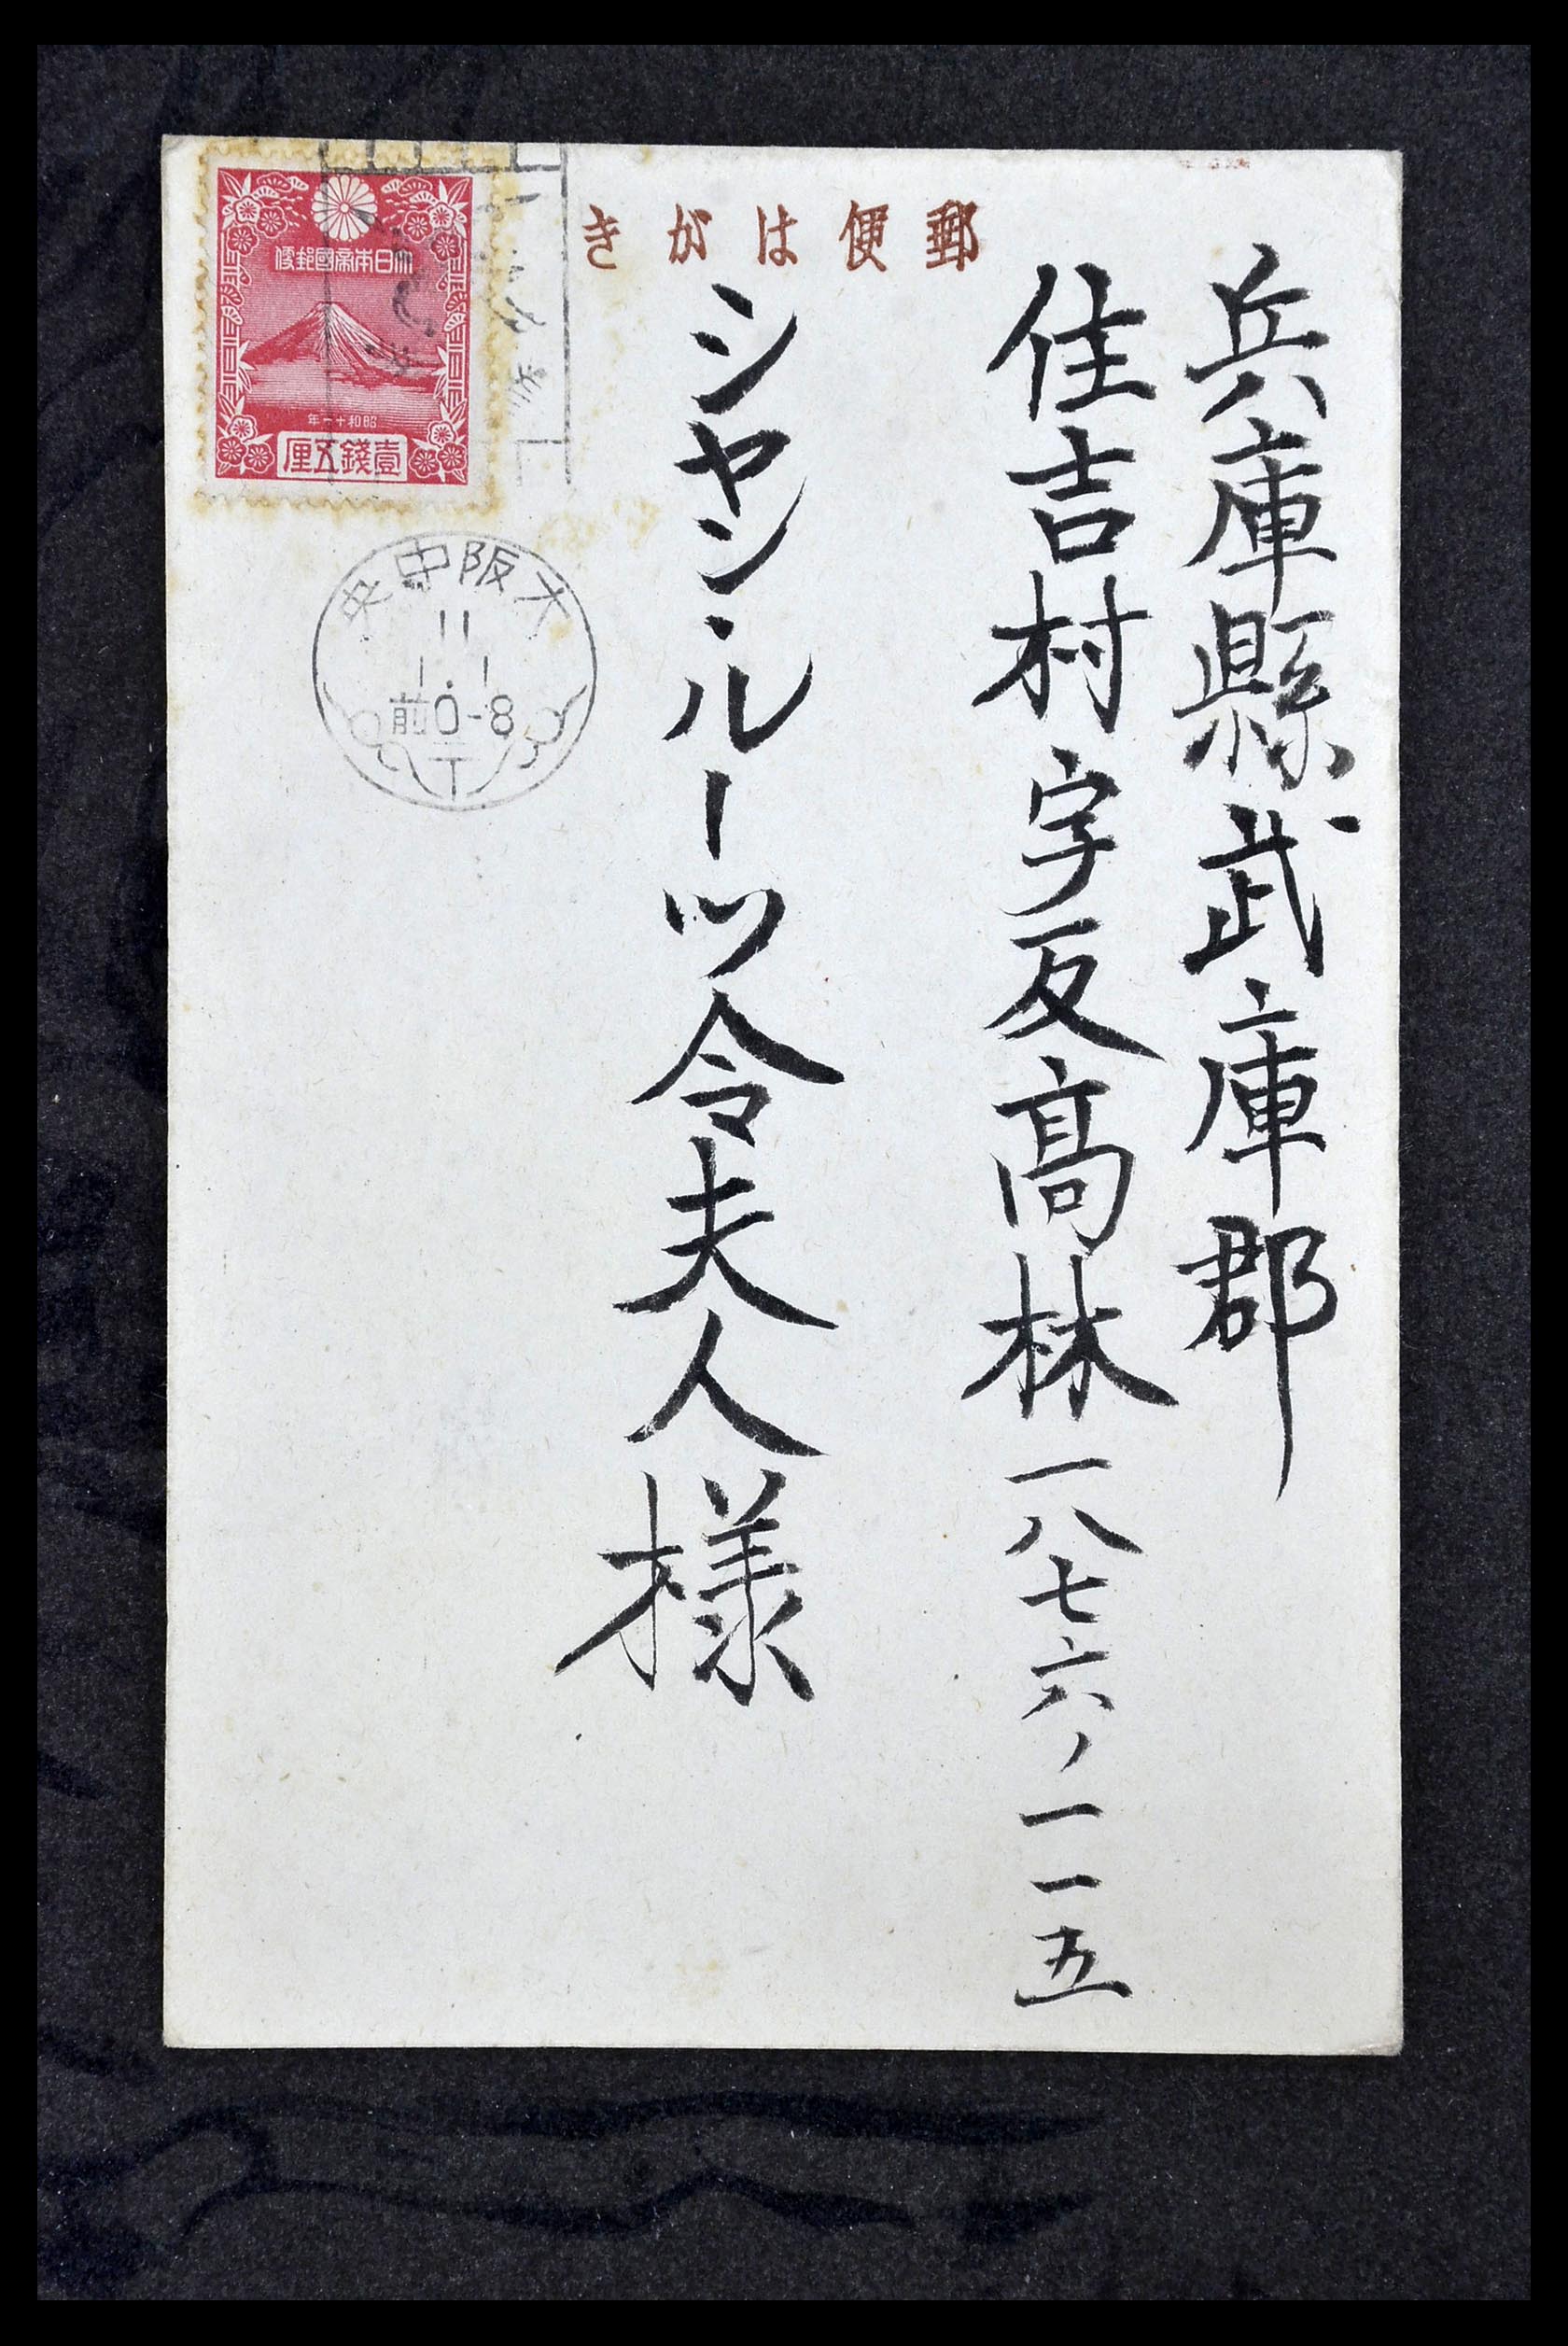 郵便はがき
兵庫縣武庫郡
住吉村字反高林一八七六ノ一一五
シャン・ルーツ令夫人様
大日本帝國郵便
昭和十一年
壹錢五厘
大阪中央
11
1.1
前0-8
T